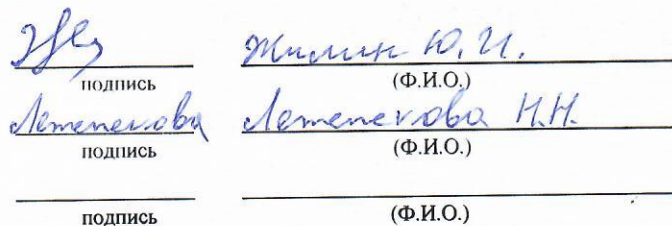 Жилин Ю.И.
подпись (Ф.И.О.)
Летепекова Летепекова Н.Н.
подпись (Ф.И.О.)
подпись (Ф.И.О.)